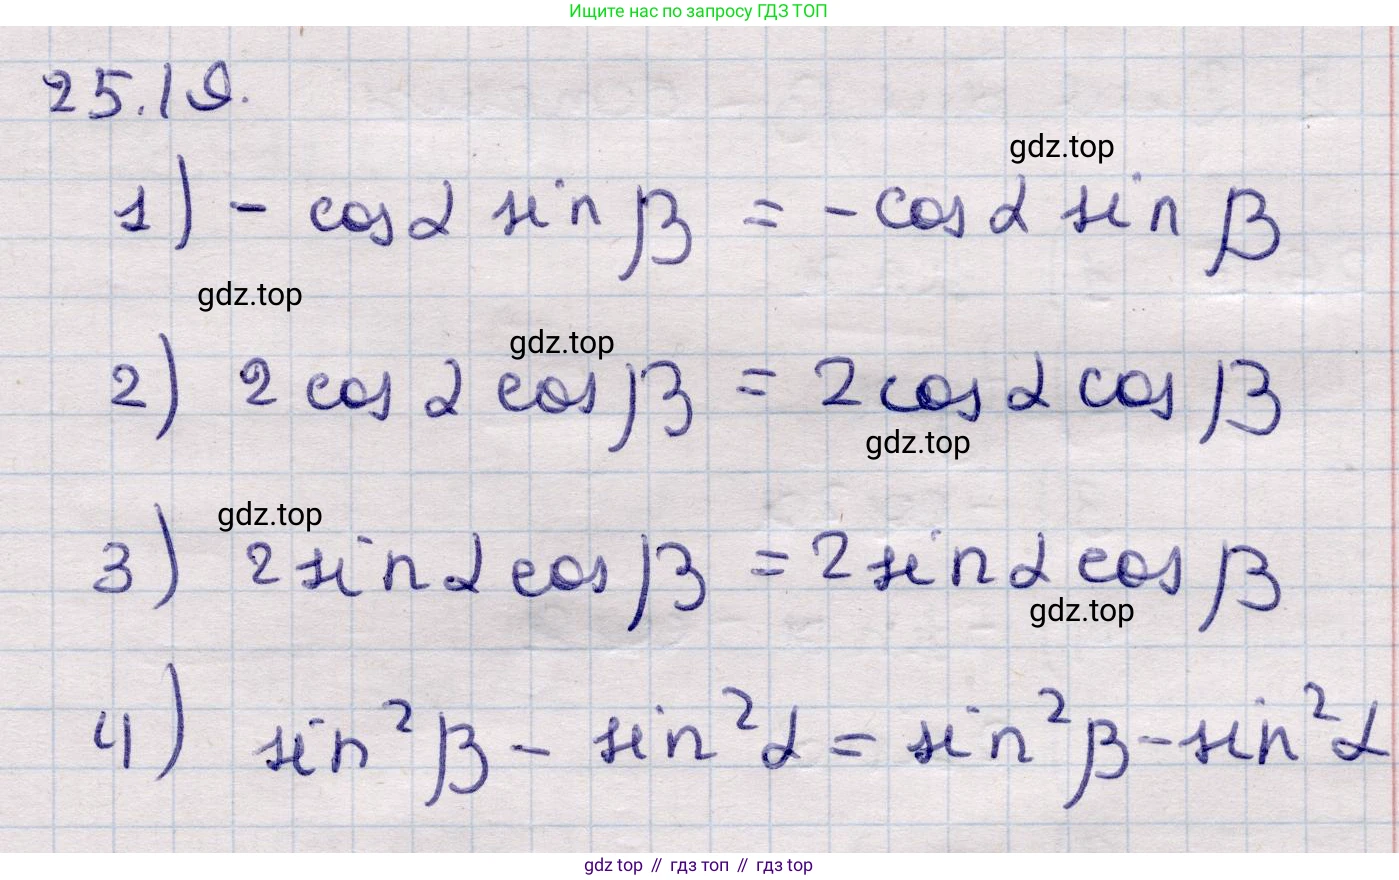 Ищите нас по запросу ГДЗ ТОП
25.19.
gdz.top
1) - cos α sin β = - cos α sin β
gdz.top
gdz.top
2) 2 cos α cos β = 2 cos α cos β
gdz.top
gdz.top
3) 2 sin α cos β = 2 sin α cos β
gdz.top
4) sin² β - sin² α = sin² β - sin² α
gdz top // гдз топ // гдз top